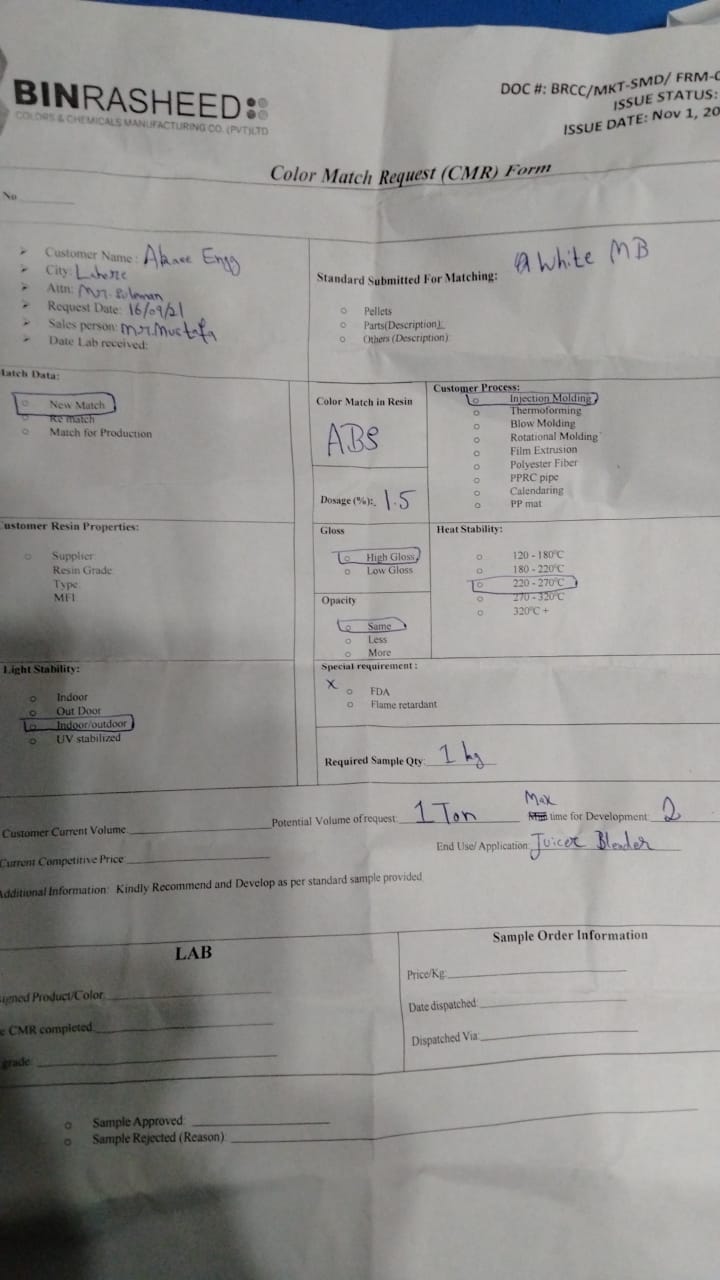 BINRASHEED
COLORS & CHEMICALS MANUFACTURING CO. (PVT)LTD
DOC #: BRCC/MKT-SMD/ FRM-
ISSUE STATUS:
ISSUE DATE: Nov 1, 20
Color Match Request (CMR) Form
No
Customer Name: Engg
City: Lahore
Attn: Mr. Suleman
Request Date: 16/09/21
Sales person: Mr. Mustafa
Date Lab received:
Standard Submitted For Matching: White MB
Pellets
Parts(Description):
Others (Description)
Match Data:
New Match
Re match
Match for Production
Color Match in Resin
ABS
Dosage (%): 1.5
Customer Process:
Injection Molding
Thermoforming
Blow Molding
Rotational Molding
Film Extrusion
Polyester Fiber
PPRC pipe
Calendaring
PP mat
Customer Resin Properties:
Supplier
Resin Grade
Type
MFI
Gloss
High Gloss
Low Gloss
Opacity
Same
Less
More
Heat Stability:
120 - 180°C
180 - 220°C
220 - 270°C
270 - 320°C
320°C +
Light Stability:
Indoor
Out Door
Indoor/outdoor
UV stabilized
Special requirement :
X
FDA
Flame retardant
Required Sample Qty: 1 kg
Customer Current Volume
Potential Volume of request: 1 Ton
Max time for Development: 2
Current Competitive Price
End Use/ Application: Juicer Blender
Additional Information: Kindly Recommend and Develop as per standard sample provided
LAB
signed Product/Color
e CMR completed
grade:
Sample Order Information
Price/Kg:
Date dispatched:
Dispatched Via:
Sample Approved:
Sample Rejected (Reason)